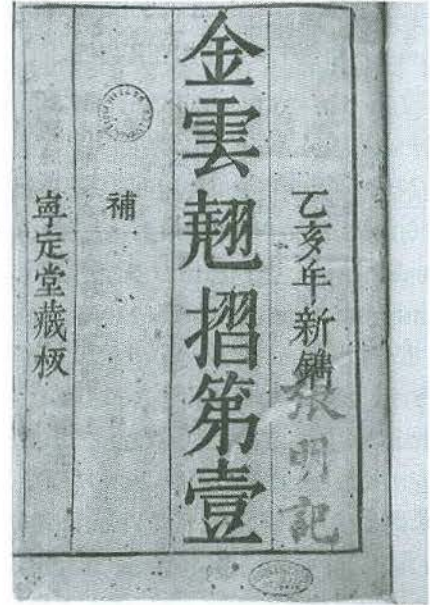 乙亥年新鐫
張明記
金雲翹摺第壹
補
寧定堂藏板